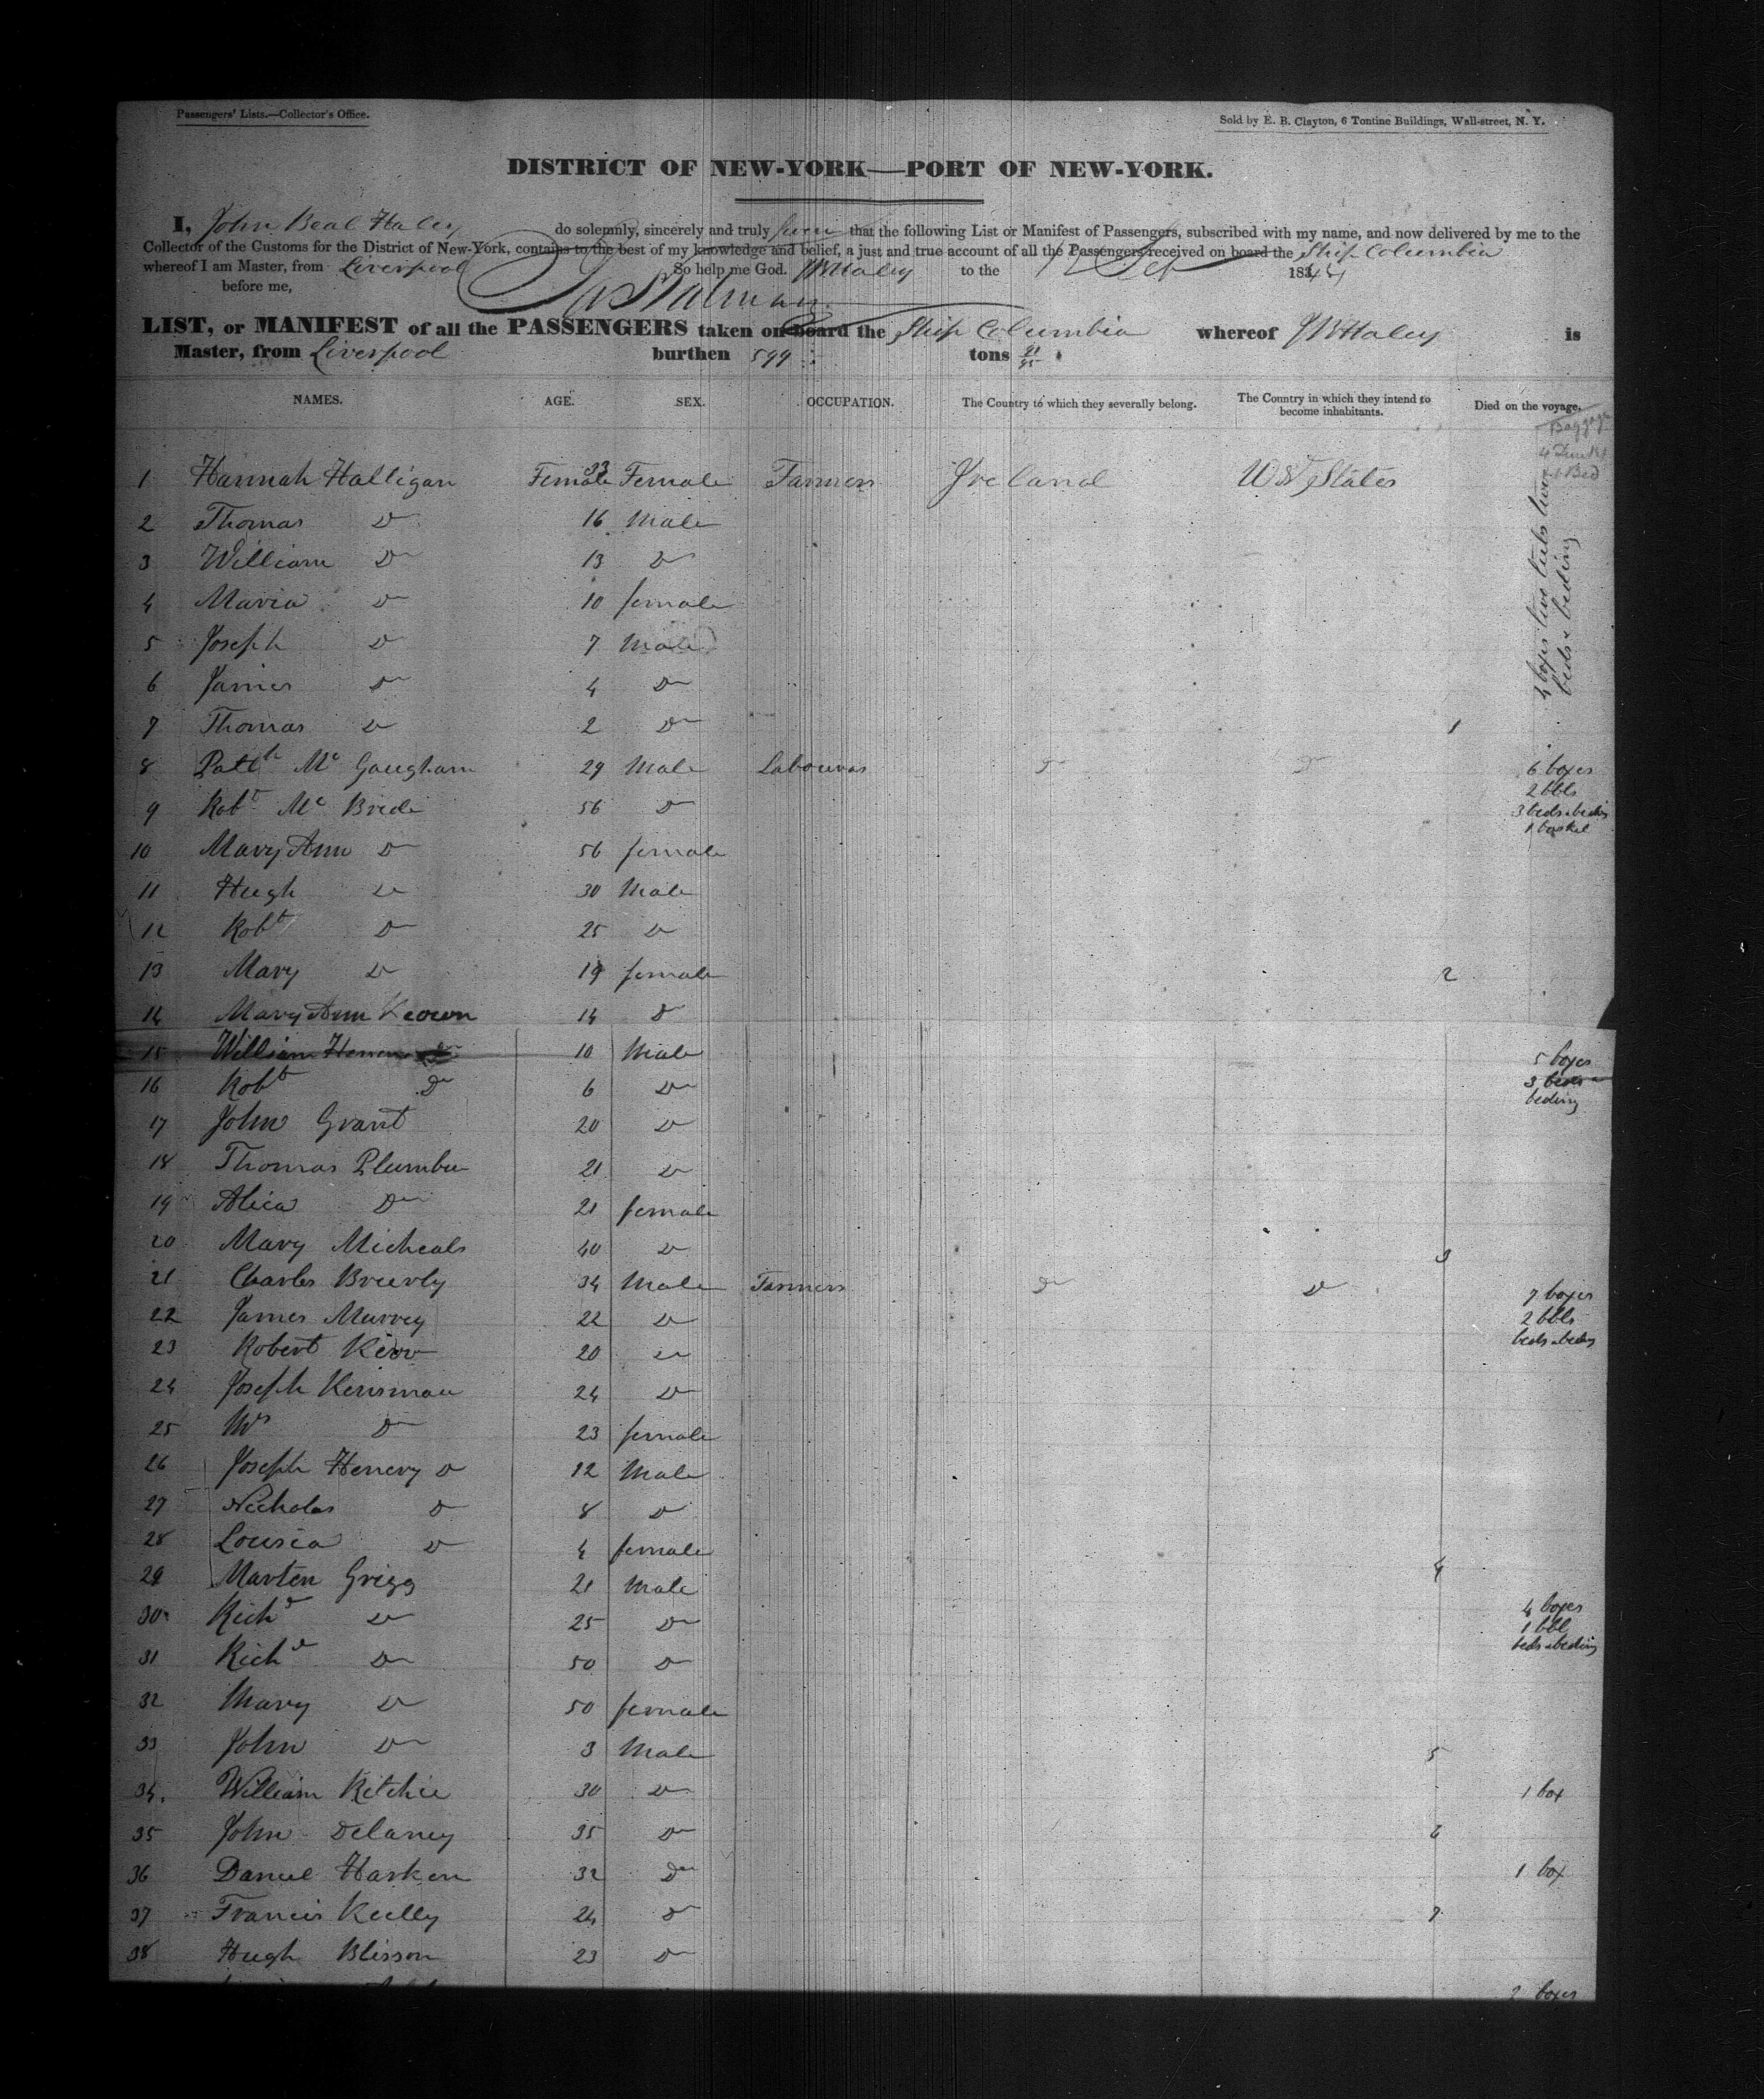 Passengers' Lists.—Collector's Office.
Sold by E. B. Clayton, 6 Tontine Buildings, Wall-street, N. Y.
DISTRICT OF NEW-YORK—PORT OF NEW-YORK.
I, John Beal Haley do solemnly, sincerely and truly swear that the following List or Manifest of Passengers, subscribed with my name, and now delivered by me to the
Collector of the Customs for the District of New-York, contains to the best of my knowledge and belief, a just and true account of all the Passengers received on board the Ship Columbia
whereof I am Master, from Liverpool So help me God. JBHaley to the 12 Feb 184
before me,
LIST, or MANIFEST of all the PASSENGERS taken on board the Ship Columbia whereof JBHaley is
Master, from Liverpool burthen 599 tons 21/95
NAMES. AGE. SEX. OCCUPATION. The Country to which they severally belong. The Country in which they intend to become inhabitants. Died on the voyage.
Baggage
1 Hannah Halligan Female 33 Female Farmers Ireland Ud States
2 Thomas Do 16 Male
3 William Do 13 Do
4 Maria Do 10 female
5 Joseph Do 7 Male
6 James Do 4 Do
7 Thomas Do 2 Do 1
beds & beding
8 Patk Mc Gaugham 29 Male Labourers Do Do 6 boxes
2 bbls
9 Robt Mc Bride 56 Do 3 beds & beding
1 basket
10 Mary Ann Do 56 female
11 Hugh Do 30 Male
12 Robt Do 25 Do
13 Mary Do 19 female 2
14 Mary Ann Keown 14 Do
15 William 10 Male 5 boxes
16 Robt Do 6 Do 3 beds
beding
17 John Grant 20 Do
18 Thomas Plumber 21 Do
19 Alica Do 21 female
20 Mary Micheals 40 Do 3
21 Charles Brierly 34 Male Farmers Do Do 7 boxes
22 James Murrey 22 Do 2 bbls
23 Robert Kerr 20 Do beds & beding
24 Joseph Kinsman 24 Do
25 Mrs Do 23 female
26 Joseph Henery Do 12 Male
27 Nicholas Do 8 Do
28 Lousia Do 4 female
29 Marten Grigg 21 Male 4
30 Richd Do 25 Do 4 boxes
1 bbl
31 Richd Do 50 Do beds & beding
32 Mary Do 50 female
33 John Do 3 Male 5
34. William Ritchie 30 Do 1 box
35 John Delaney 35 Do 6
36 Daniel Harken 32 Do 1 box
37 Francis Keelly 24 Do 7
38 Hugh Blisson 23 Do
2 boxes